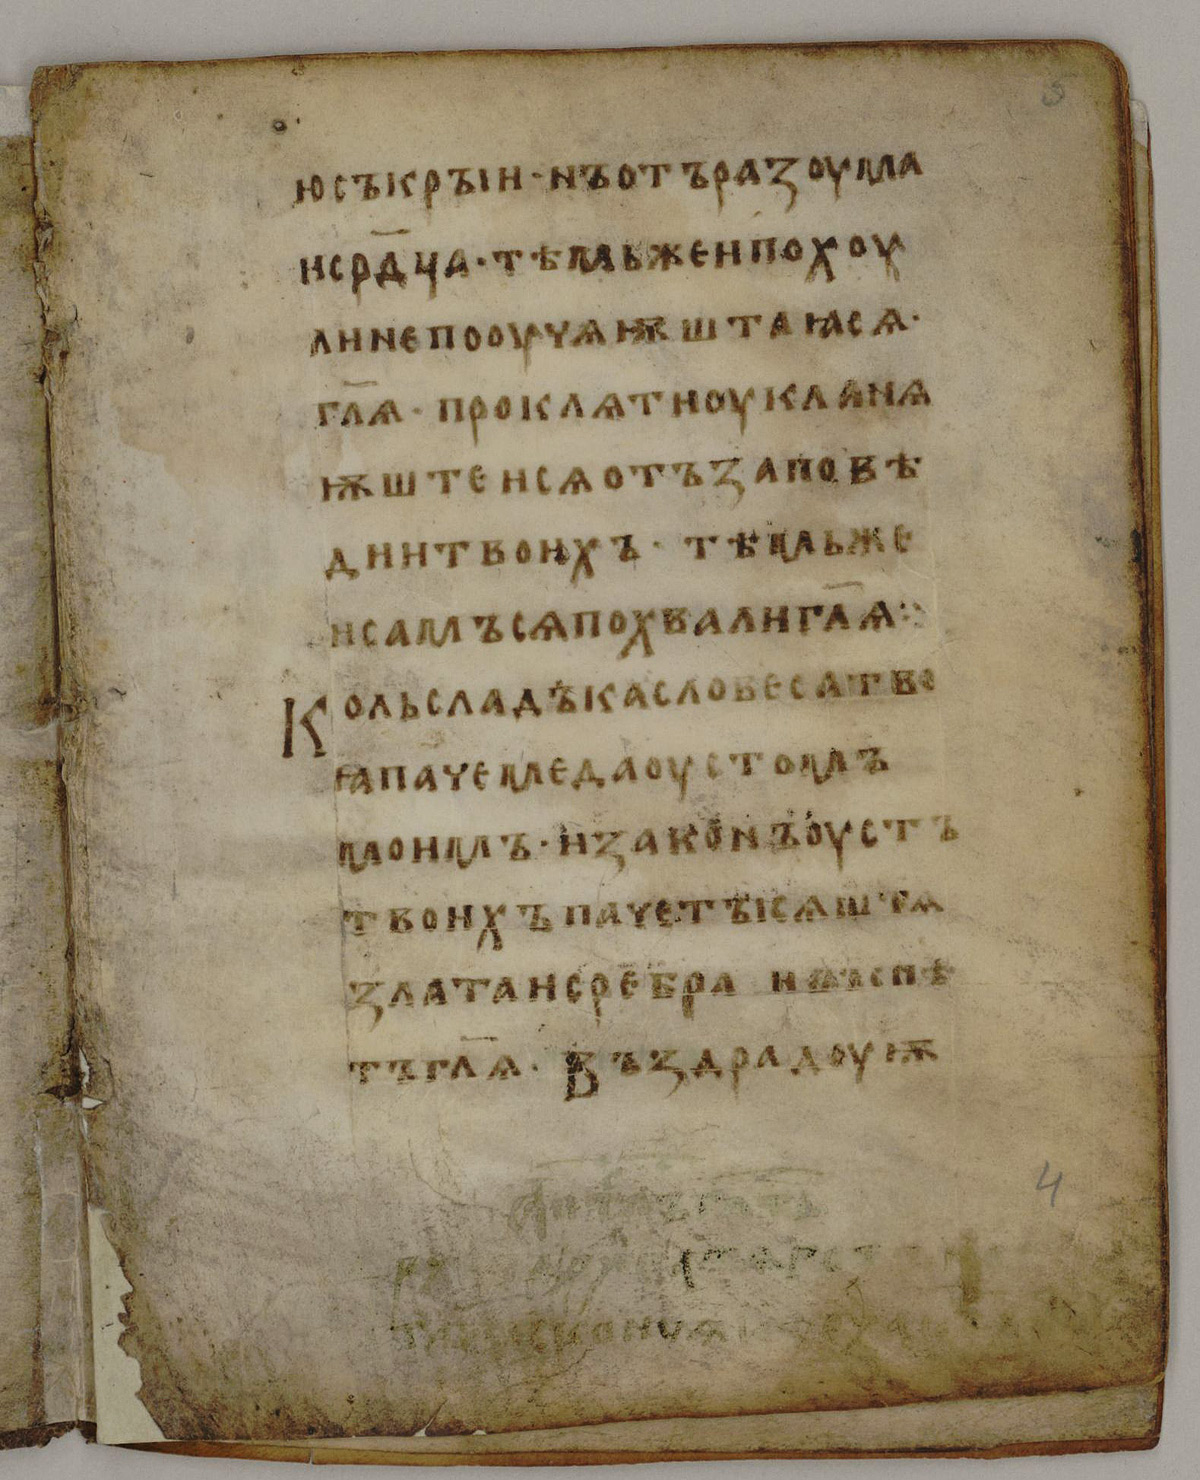 ю съкръіи · нъ отъ разоума
и ср҃дца · тѣмьже и похоу
ли не пооучѧѭштаꙗ сѧ ·
гл҃ѧ · проклѧти оукланꙗ
ѭштеи сѧ отъ заповѣ
дии твоихъ · тѣмьже
и самъ сѧ похвали гл҃ѧ ·:
Коль сладъка словеса тво
ꙗ паче меда оустомъ
моимъ · и законъ оустъ
твоихъ паче тъісѧштѧ
злата и сребра
тъ гл҃ѧ · Въздрадоуѭ